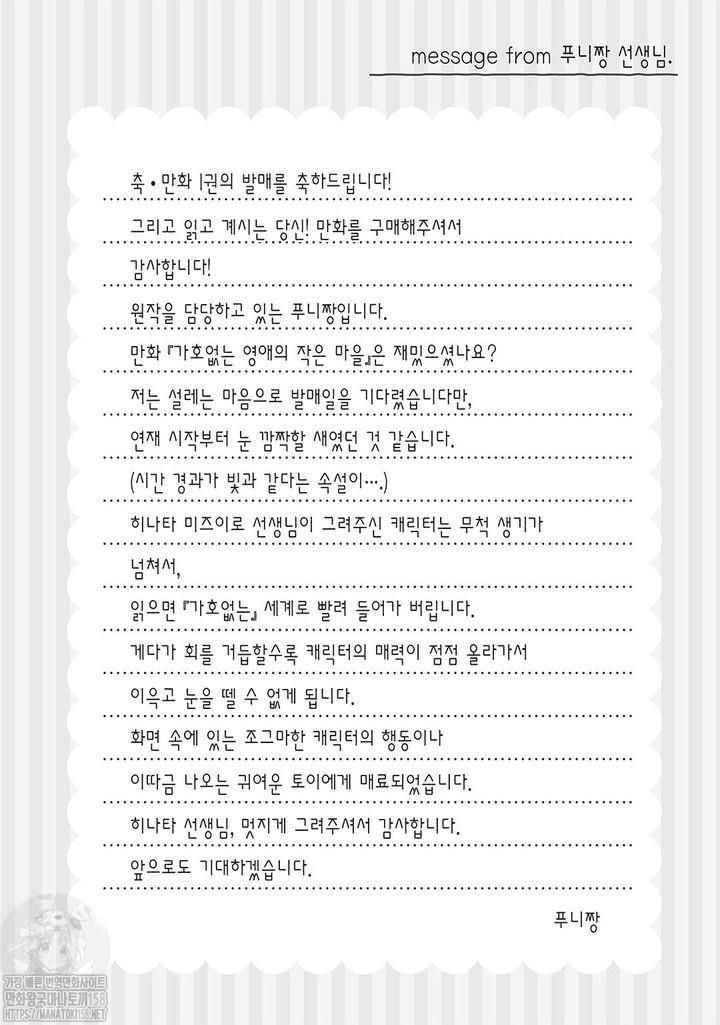 message from 푸니짱 선생님.
축·만화 1권의 발매를 축하드립니다!
그리고 읽고 계시는 당신! 만화를 구매해주셔서
감사합니다!
원작을 담당하고 있는 푸니짱입니다.
만화 『가호없는 영애의 작은 마을』은 재밌으셨나요?
저는 설레는 마음으로 발매일을 기다렸습니다만,
연재 시작부터 눈 깜짝할 새였던 것 같습니다.
(시간 경과가 빛과 같다는 속설이….)
히나타 미즈이로 선생님이 그려주신 캐릭터는 무척 생기가
넘쳐서,
읽으면 『가호없는』 세계로 빨려 들어가 버립니다.
게다가 회를 거듭할수록 캐릭터의 매력이 점점 올라가서
이윽고 눈을 뗄 수 없게 됩니다.
화면 속에 있는 조그마한 캐릭터의 행동이나
이따금 나오는 귀여운 토이에게 매료되었습니다.
히나타 선생님, 멋지게 그려주셔서 감사합니다.
앞으로도 기대하겠습니다.
푸니짱
가장 빠른 번역만화사이트
만화왕국마나토끼158
HTTPS://MANATOKI158.NET